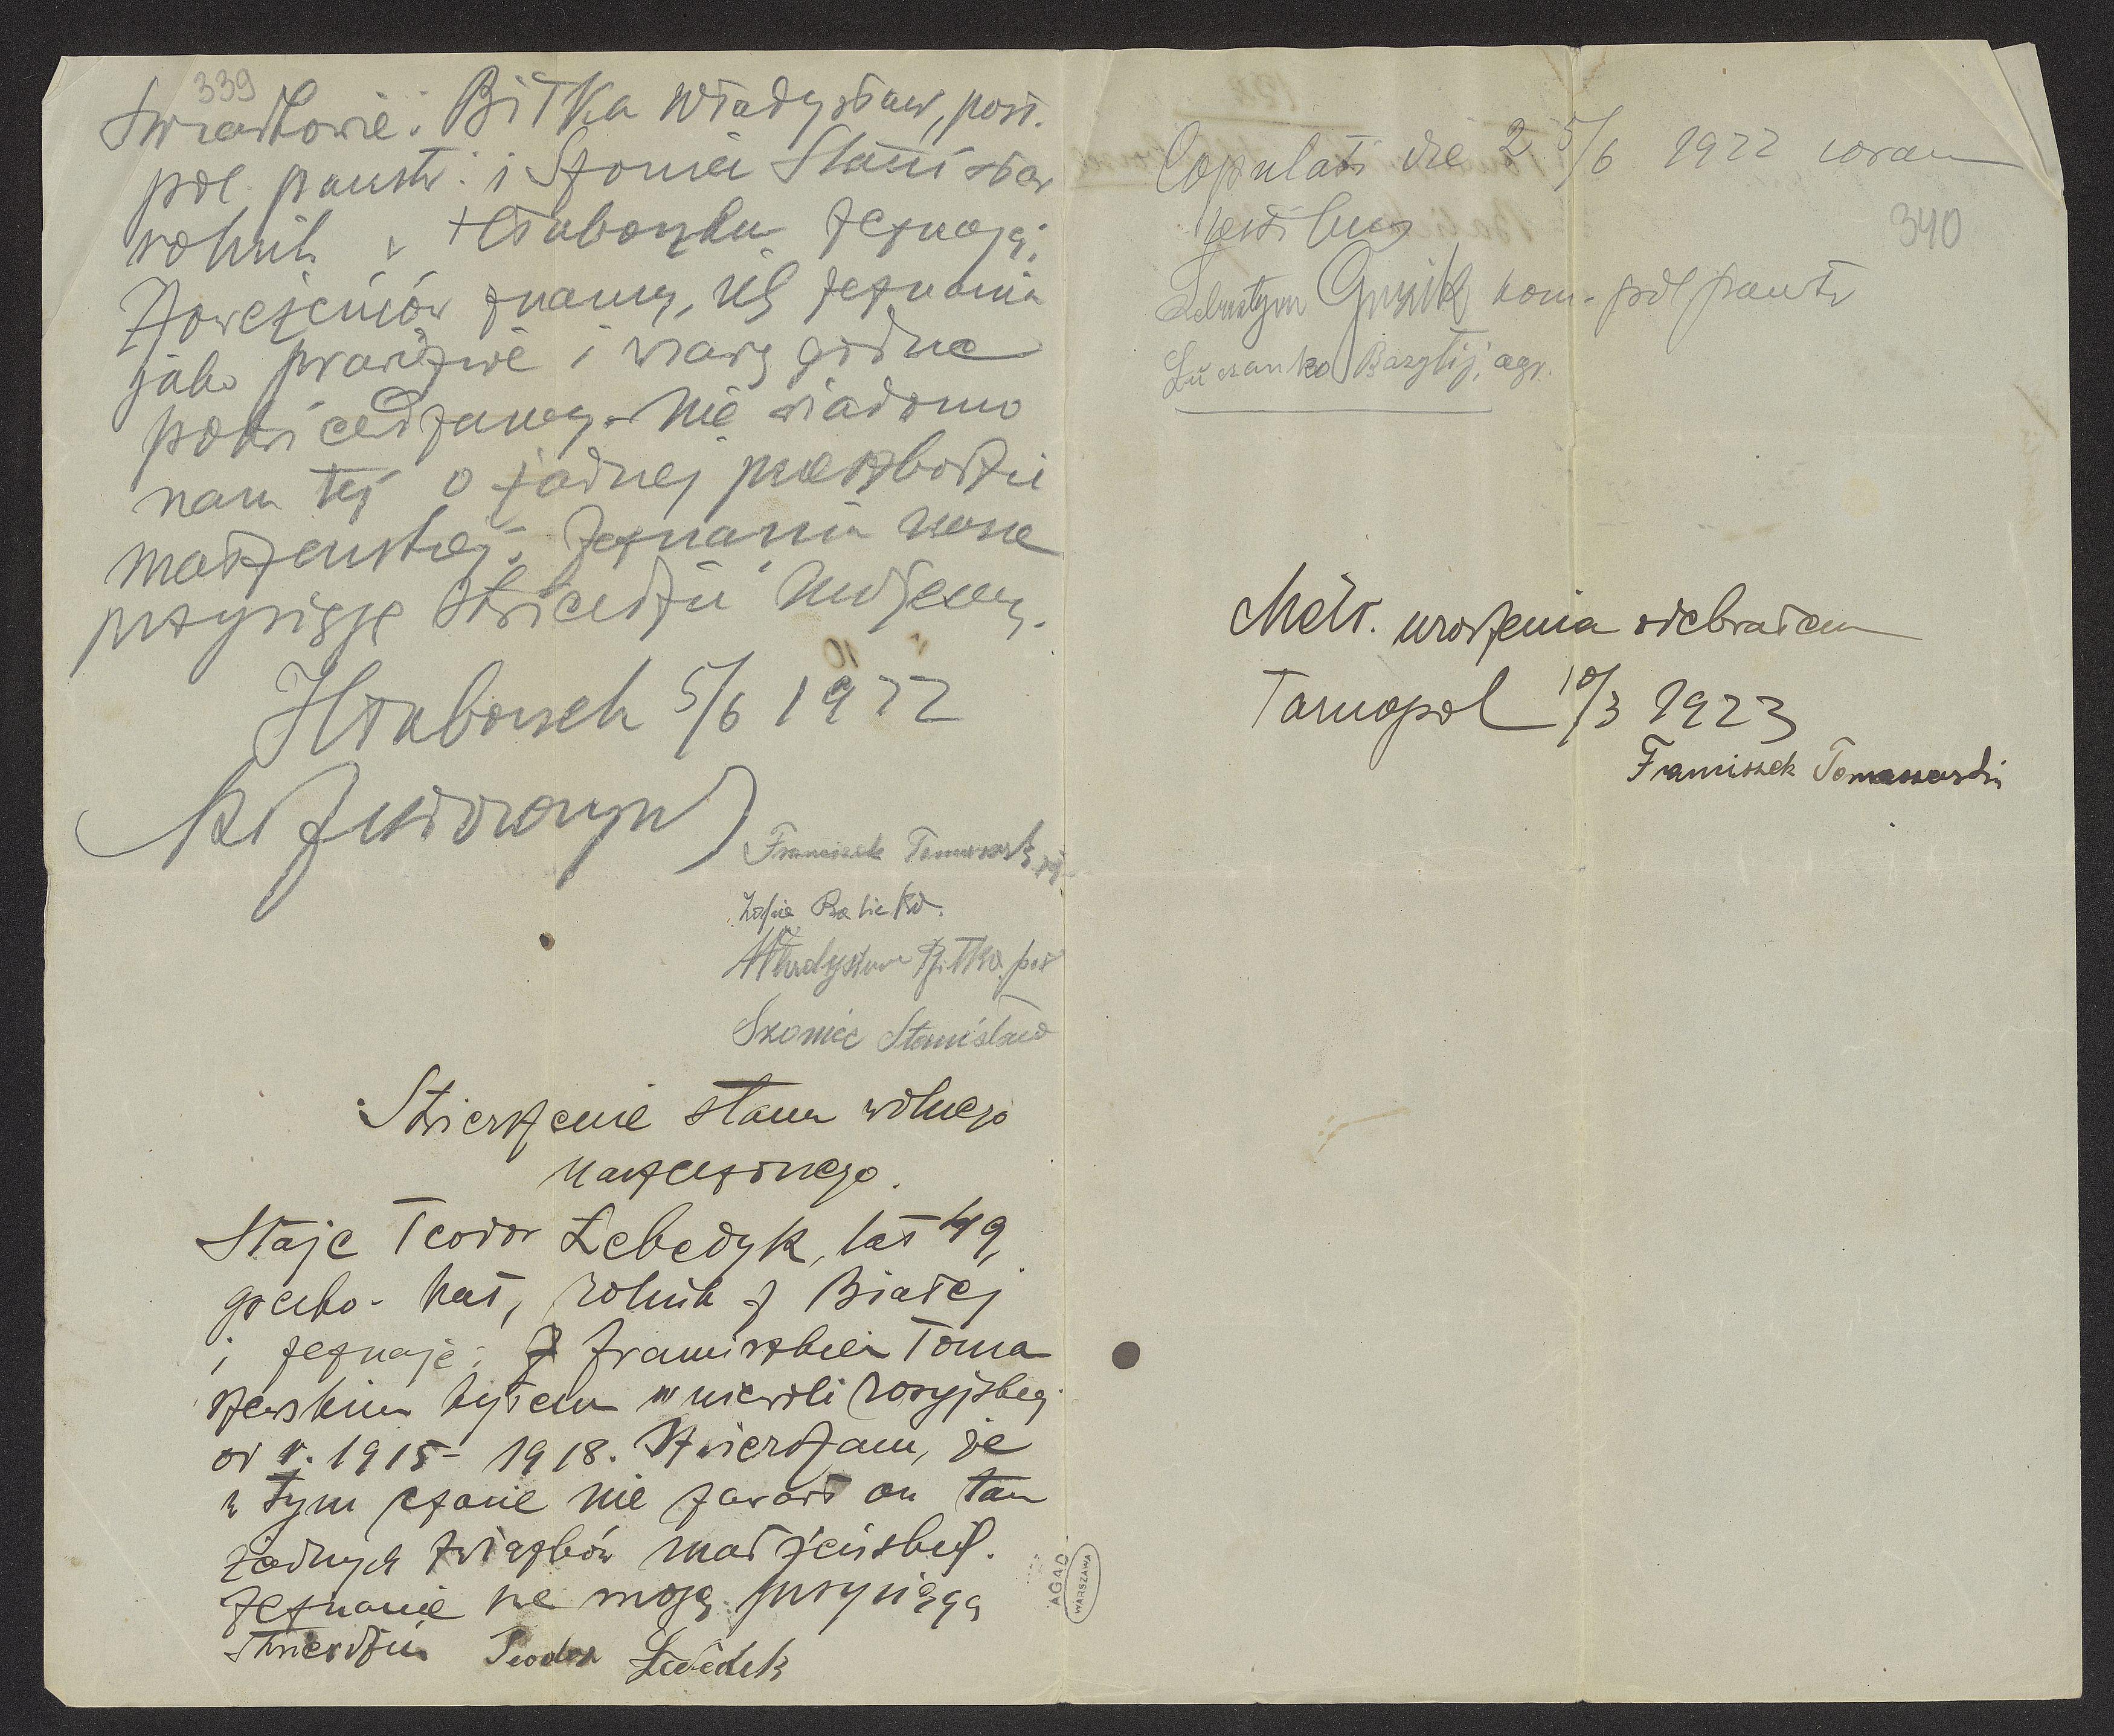 339
Świadkowie: Bitka Władysław, post.
pol. państw. i Szomier Stanisław
rolnik z Hłuboczka zeznają:
Narzeczonych znamy, ich zeznania
jako prawdziwe i wiary godne
potwierdzamy. Nie wiadomo
nam też o żadnej przeszkodzie
małżeńskiej. Zeznania nasze
przysięgą stwierdzić możemy.
Hłuboczek 5/6 1922
Franciszek Tomaszewski
Zofia Balicka.
Władysław Bitka post
Stanisław
Stwierdzenie stanu wolnego
narzeczonego.
Staje Teodor Łebedyk, lat 49,
grecko-kat, rolnik z Białej
i zeznaje: Z Franciszkiem Toma
szewskim byłem w niewoli rosyjskiej
od r. 1915 - 1918. Stwierdzam, że
w tym czasie nie zawarł on tam
żadnych związków małżeńskich.
Zeznanie me mogę przysięgą
stwierdzić. Teodor Łebedyk
AGAD
WARSZAWA
Copulati die 25/6 1922 coram
testibus
340
kom. pol państw
Bazylij, agr.
Metr. urodzenia odebrałem
Tarnopol 10/3 1923
Franciszek Tomaszewski